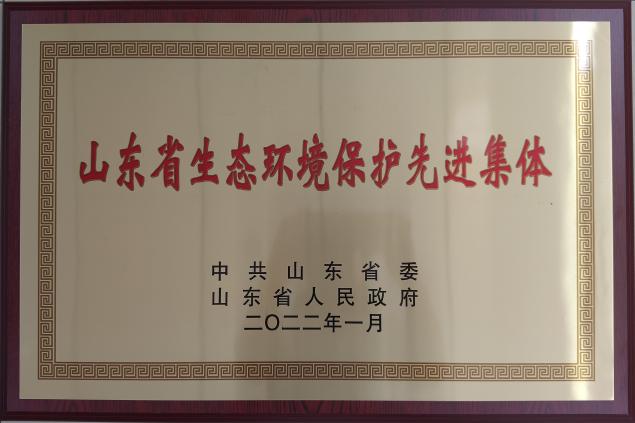 山东省生态环境保护先进集体
中共山东省委
山东省人民政府
二〇二二年一月